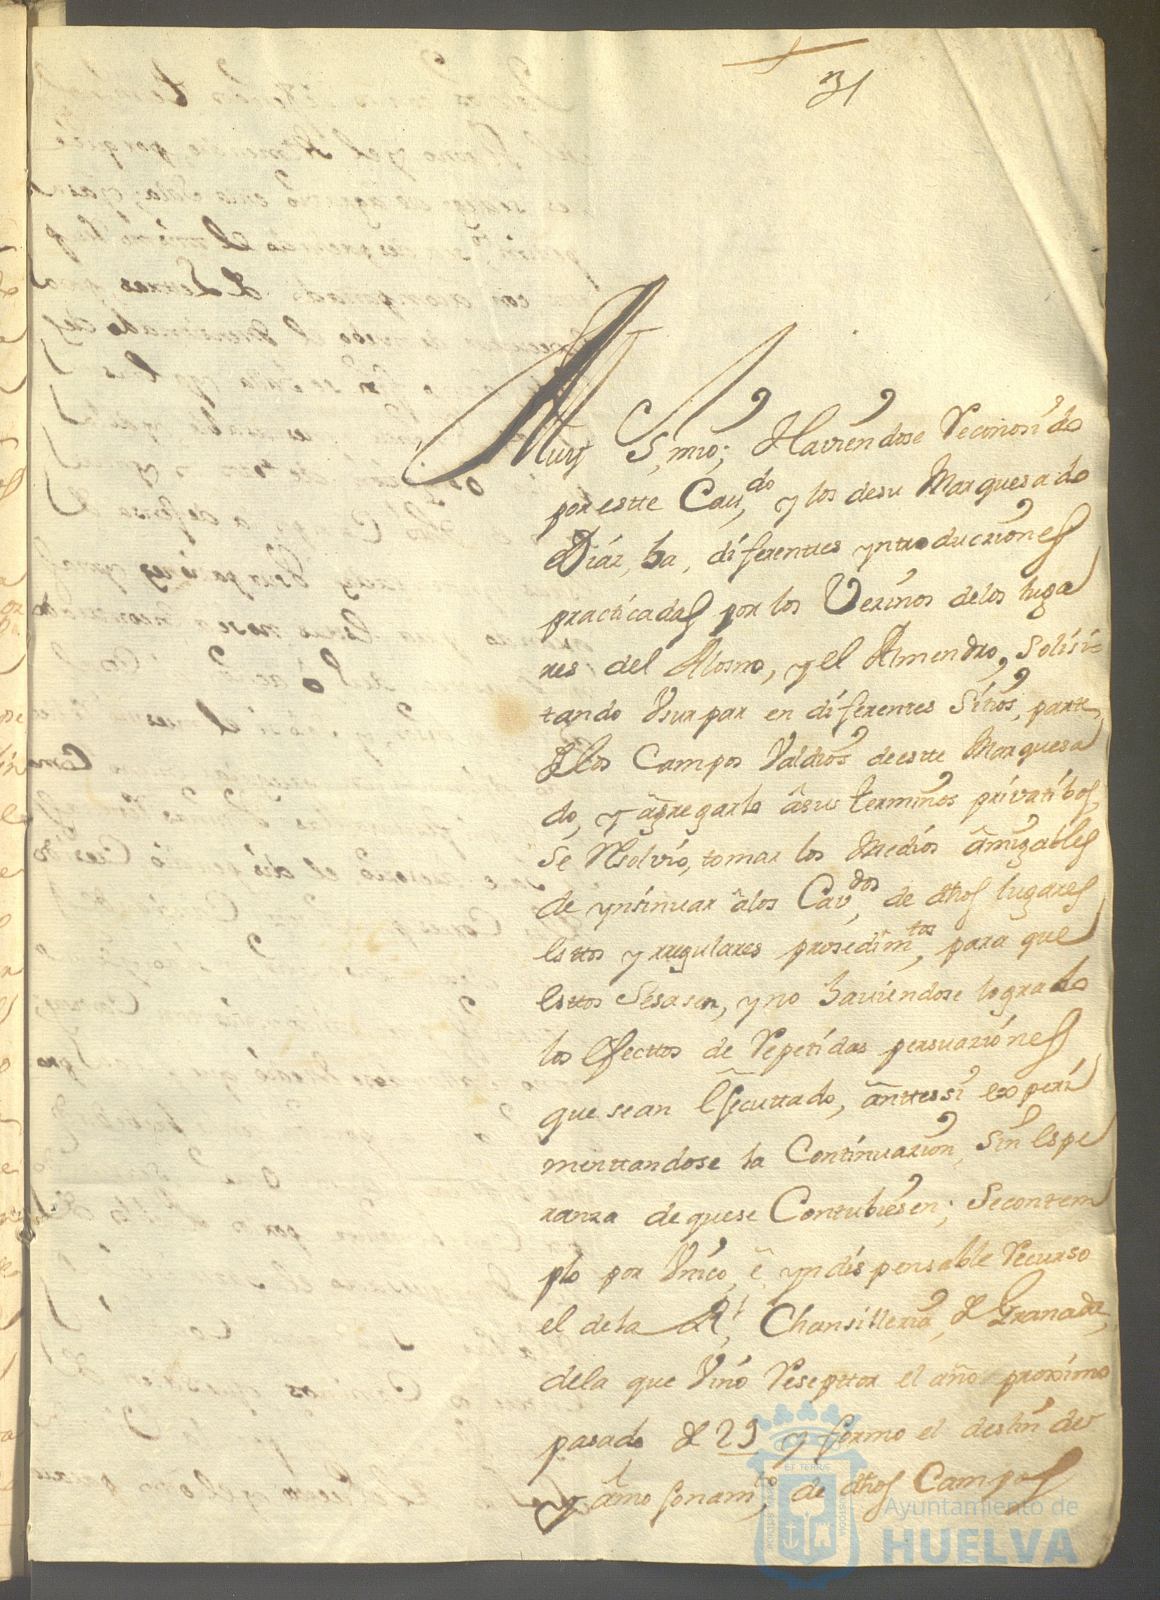 31
Muy S. mio; Haviendose Reconosido
por estte Cav.do, y los de su Marquesado
diaz ha, diferentes yntroduziones
practicadas por los Vezinos delos luga
res del Alosno, y el Almendro, solisi
tando Vsurpar en diferentes Sitios, parte
de los Campos Valdios deestte Marquesa
do, y agregarlo âsus terminos privatibos,
se Rsolvio, tomar los Medios âmigables
de ynsinuar âlos Cav.dos, de dhos lugares
Esttos yrregulares prosedim.tos, para que
Esttos Sesasen, y no haviendose logrado
los Efecttos de Repetidas persuaziones
que sean Efecuttado, ânttessi experi
menttandose la Continuazion, Sin Espe
ranza de quese Contubiesen; Secontem
plo por Vnico, ê yndispensable Recurso
el dela Rl. Chansilleria, de Granada,
dela que Vino Reseptor el año proximo
pasado de 29 y formo el deslinde
y âmojonam.to, de dhos Campos
Ayuntamiento de
HUELVA